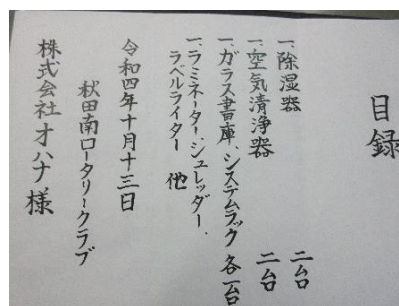 目録
一、除湿器 二台
一、空気清浄器 二台
一、ガラス書庫、システムラック 各一台
一、ラミネーター、シュレッダー、
ラベルライター 他
令和四年十月十三日
秋田南ロータリークラブ
株式会社オハナ様